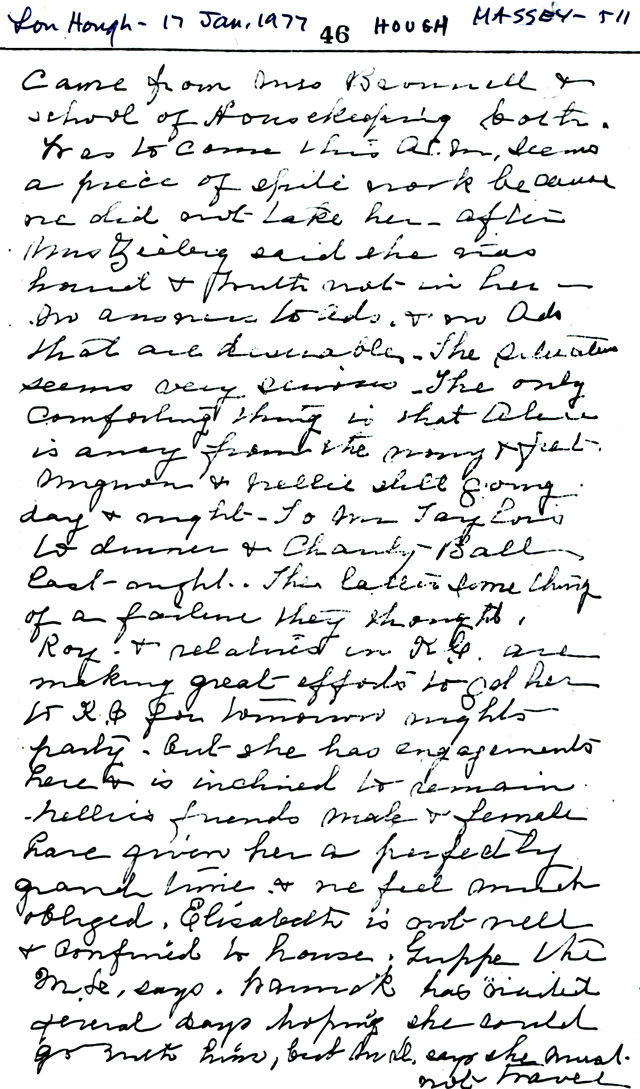 Lon Hough - 17 Jan, 1977 46 HOUGH MASSEY - 511
Came from Mrs Brownell &
school of Housekeeping both.
Was to come this A.M, seems
a piece of spite work because
we did not take her - after
Mrs said she was
& truth not in her -
No answers to ads. & no Ads
that are desirable. - The situation
seems very serious - The only
comforting thing is that Alice
is away from the worry & fret.
Mignon & Nellie still going
day & night - To Mr Taylors
to dinner & Charity Ball
last night.. The latter something
of a failure they thought.
Roy. & relatives in K.C. are
making great efforts to get her
to K.C for tomorrow nights
party. but she has engagements
here & is inclined to remain
Nellie's friends male & female
have given her a perfectly
grand time. & we feel much
obliged. Elisabeth is not well
& confined to house. Grippe the
M.D. says. has waited
several days hoping she could
go with him, but M.D. says she must
not travel